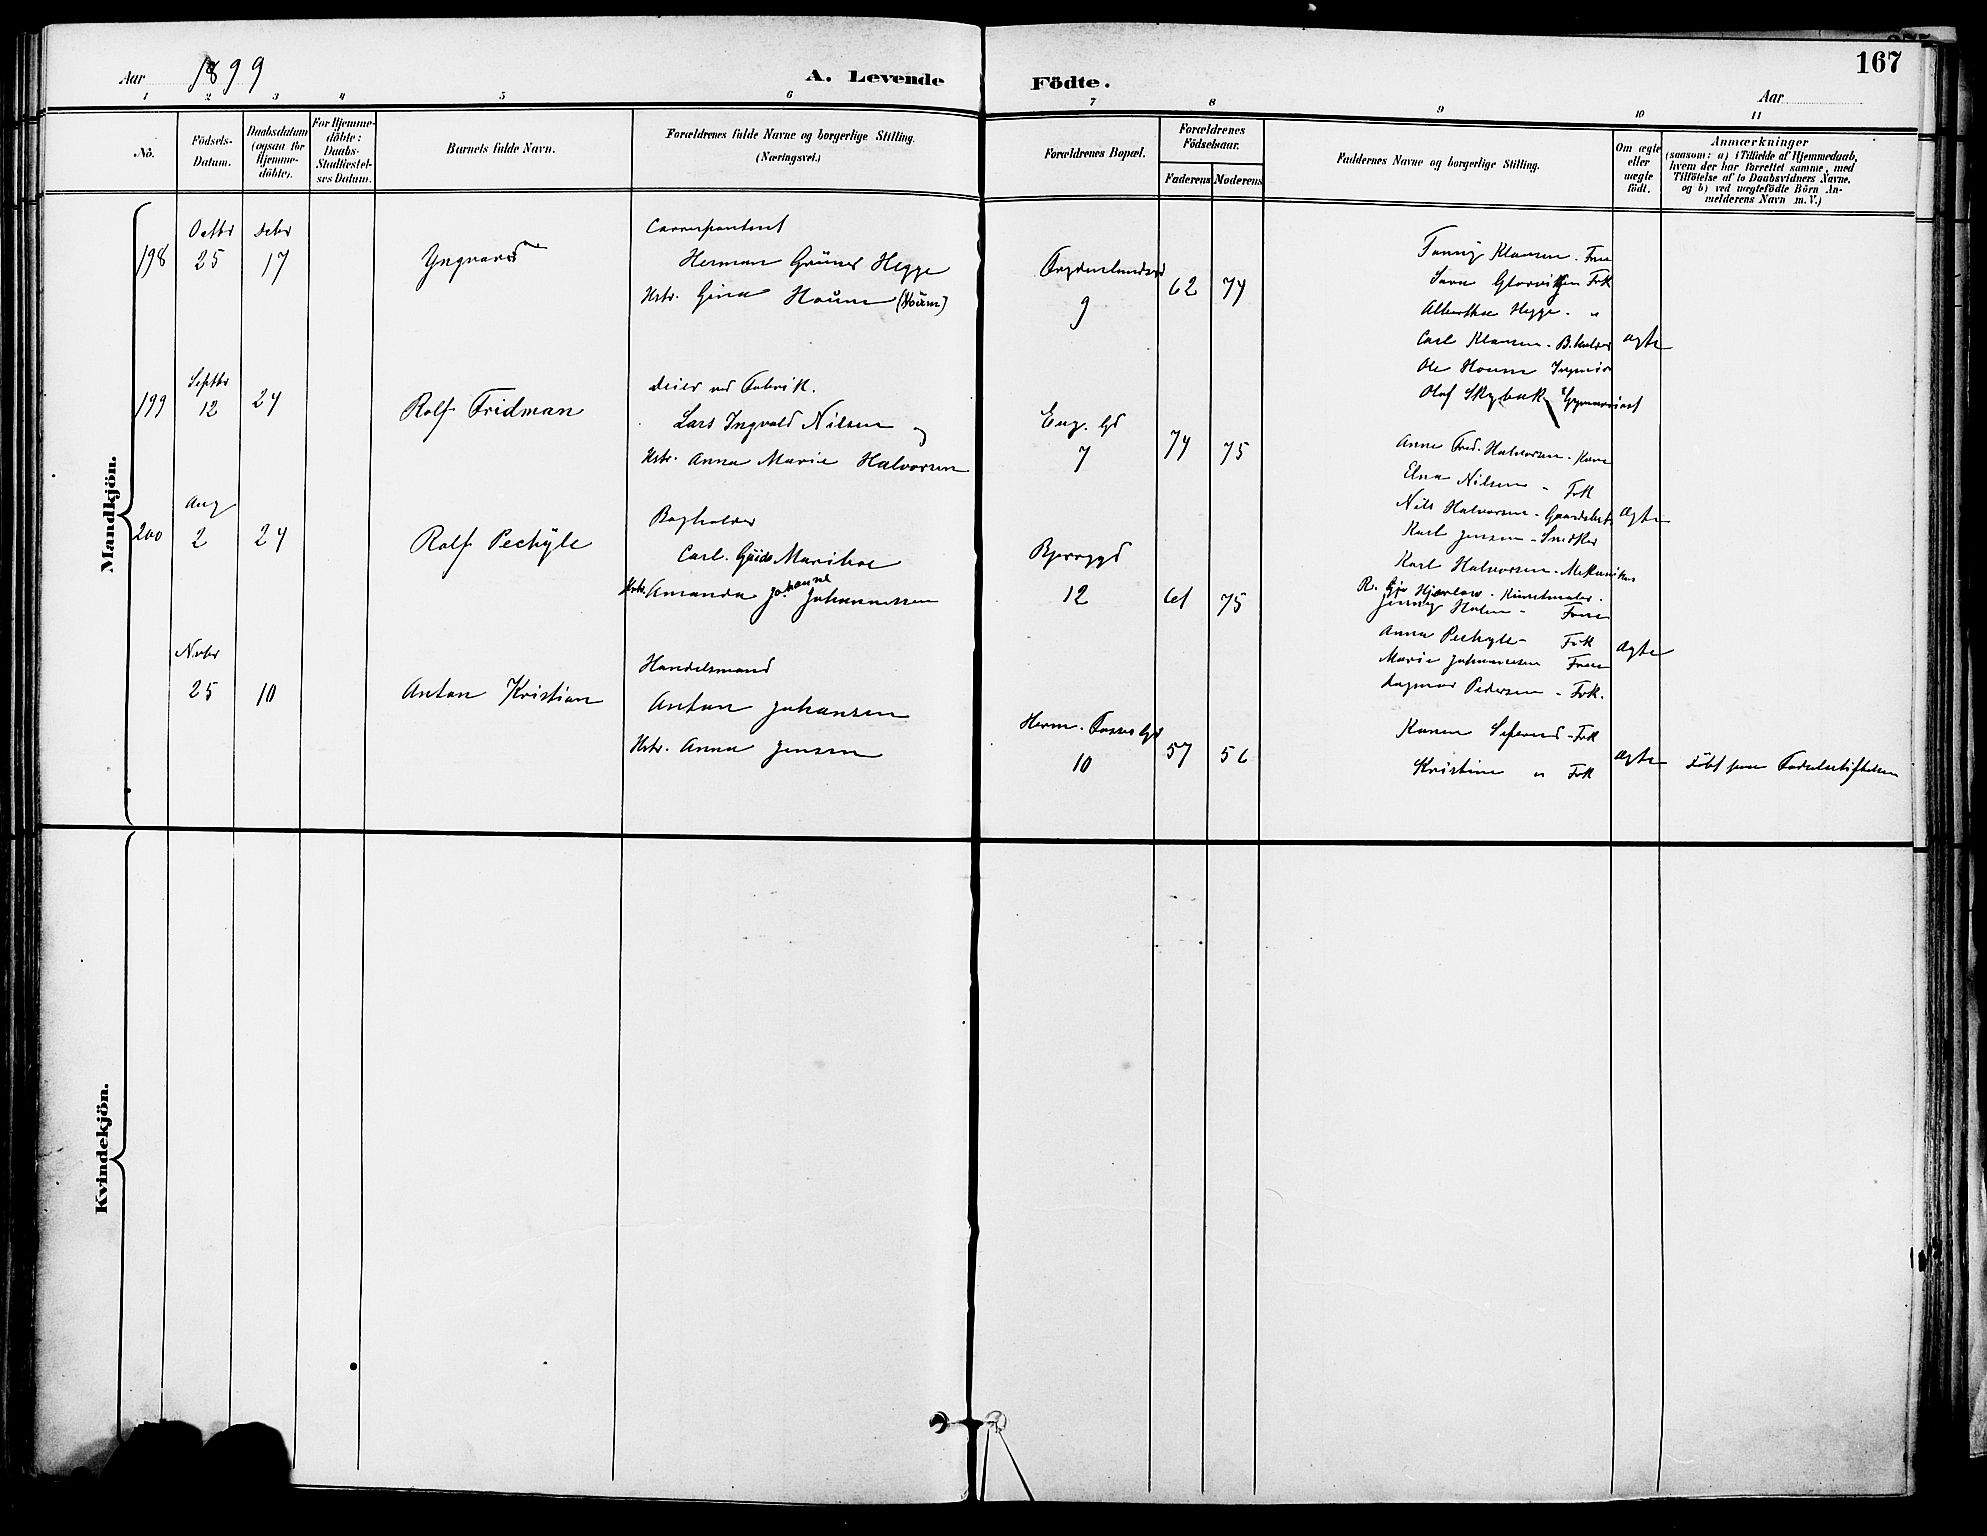 167
Aar 1899
A. Levende Födte.
Aar
1 2 3 4 5 6 7 8 9 10 11
No.
Födsels-Datum.
Daabsdatum (ogsaa for Hjemme-döbte).
For Hjemme-döbte: Daabs-Stadfæstel-ses Datum.
Barnets fulde Navn.
Forældrenes fulde Navne og borgerlige Stilling. (Næringsvei.)
Forældrenes Bopæl.
Forældrenes Födselsaar.
Faderens Moderens
Faddernes Navne og borgerlige Stilling.
Om ægte eller uægte födt.
Anmærkninger
(saasom: a) i Tilfælde af Hjemmedaab,
hvem der har forrettet samme, med
Tilföielse af to Daabsvidners Navne,
og b) ved uægtefödte Börn An-
melderens Navn m. V.)
Mandkjön.
198
Octbr 25
Debr 17
Yngvar
Correspondent
Herman Grüner Hegge
Hstr. Gina Houm
9
62 74
Fanny Klausen. Frue
Frk
Alberthe Hegge. "
Carl Klausen - B.holder
Ole Houm Ingeniör
Olaf Skybak
ægte
199
Septbr 12
24
Rolf Fridman
Deier ved Fabrik.
Lars Ingvald Nilsen og
Hstr. Anna Marie Halvorsen
Eng. Gd
7
74 75
Anne Fred. Halvorsen - Kone
Elna Nilsen - Frk
Nils Halvorsen - Gaardsbest
Karl Jensen - Snedker
Karl Halvorsen - Mekaniker
ægte
200
Aug 2
24
Rolf Pechyle
Bogholder
Carl. Guido Mariboe
Hstr. Amanda Johanne Johannessen
Bjerregd
12
61 75
Hjerlow - Kunstmaler.
Jenny Holm - Frue
Anna Pechyle - Frk
Marie Johannesen Frue
Dagmar Pedersen - Frk.
ægte
Novbr 25
10
Anton Kristian
Handelsmand
Anton Johansen
Hstr. Anna Jensen
Herm. Fosses Gd
10
57 56
Karen - Frk
Kristine " Frk
ægte
Födt paa Födselsstiftelsen
Kvindekjön.